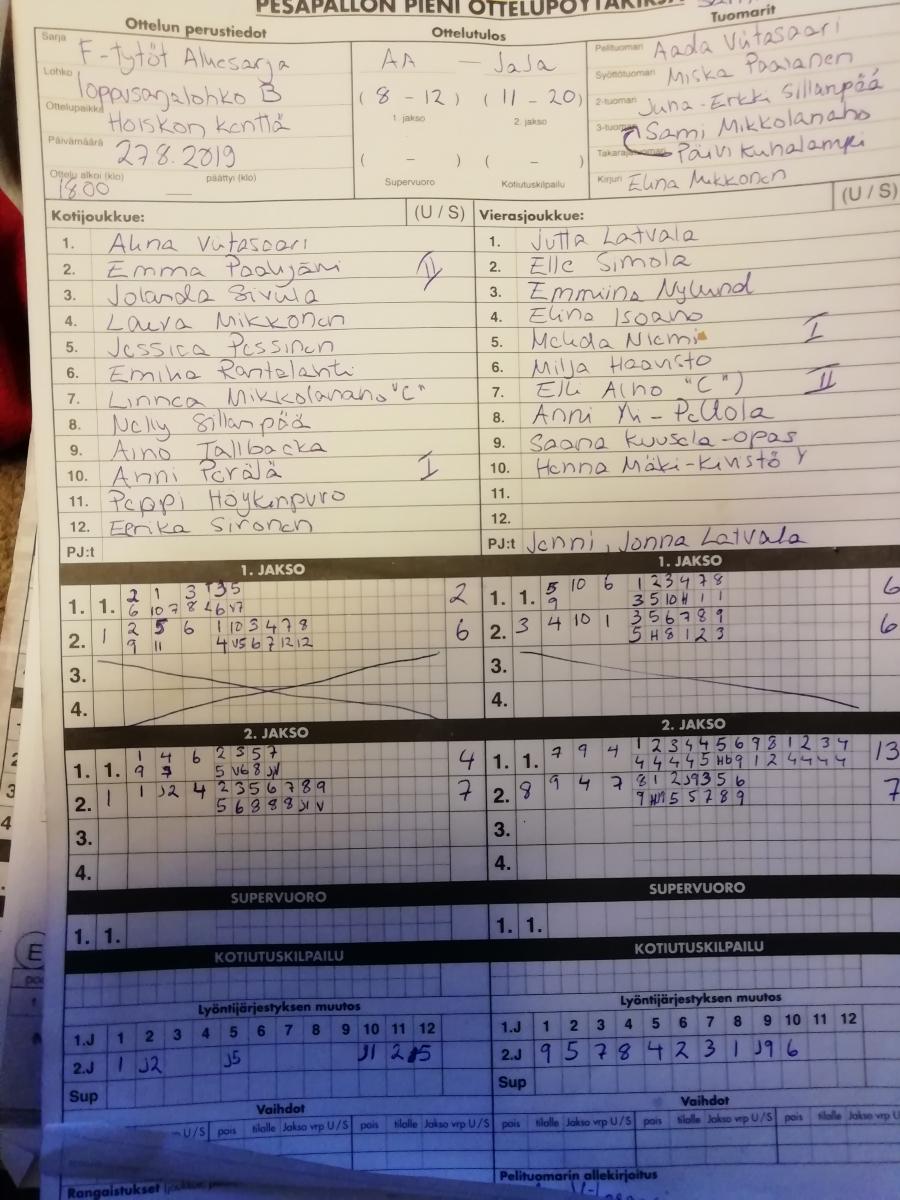 PESÄPALLON PIENI OTTELUPÖYTÄKIRJA
Ottelun perustiedot
Sarja F-tytöt Aluesarja
Lohko loppusarjalohko B
Ottelupaikka Hoiskon kenttä
Päivämäärä 27.8.2019
Ottelu alkoi (klo) 18.00 päättyi (klo)
Ottelutulos
AA — JaJa
( 8 - 12 ) ( 11 - 20 )
1. jakso 2. jakso
( - ) ( - )
Supervuoro Kotiutuskilpailu
Tuomarit
Pelituomari Aada Viitasaari
Syöttötuomari Miska Paalanen
2-tuomari Juha-Erkki Sillanpää
3-tuomari Sami Mikkolanaho
Takarajatuomari Päivi Kuhalampi
Kirjuri Elina Mikkonen
Kotijoukkue: (U / S)
1. Alina Viitasaari
2. Emma Paalijärvi II
3. Jolanda Sivula
4. Laura Mikkonen
5. Jessica Pessinen
6. Emilia Rantalahti
7. Linnea Mikkolanaho "C"
8. Nelly Sillanpää
9. Aino Tallbacka
10. Anni Perälä I
11. Peppi Höykinpuro
12. Eerika Sironen
PJ:t
Vierasjoukkue: (U / S)
1. Jutta Latvala
2. Elle Simola
3. Emmiina Nylund
4. Elina Isoaho
5. Matilda Niemi I
6. Milja Haavisto
7. Elli Alho "C") II
8. Anni Yli-Pellola
9. Saana Kuusela-opas
10. Henna Mäki-Kinstö Y
11.
12.
PJ:t Jenni, Jonna Latvala
1. JAKSO
1. 1. 2 1 3 1 3 5 2
6 10 7 8
2. 1 2 5 6 1 10 3 4 7 8 6
9 11 4 V5 6 7 12 12
3.
4.
1. JAKSO
1. 1. 5 10 6 1 2 3 4 7 8 6
9 3 5 10 H 1 1
2. 3 4 10 1 3 5 6 7 8 9 6
5 H 8 1 2 3
3.
4.
2. JAKSO
1. 1. 1 4 6 2 3 5 7 4
9 5 V6 8
2. 1 1 J2 4 2 3 5 6 7 8 9 7
5 6 8 8 8 J1 V
3.
4.
2. JAKSO
1. 1. 7 9 4 1 2 3 4 4 5 6 9 8 1 2 3 4 13
4 4 4 4 5 H6 9 1 2 4 4 4 4
2. 8 9 4 7 8 1 2 J9 3 5 6 7
9 5 5 7 8 9
3.
4.
SUPERVUORO
1. 1.
SUPERVUORO
1. 1.
KOTIUTUSKILPAILU
KOTIUTUSKILPAILU
Lyöntijärjestyksen muutos
1.J 1 2 3 4 5 6 7 8 9 10 11 12
2.J 1 J2 J5 J1 2
Sup
Lyöntijärjestyksen muutos
1.J 1 2 3 4 5 6 7 8 9 10 11 12
2.J 9 5 7 8 4 2 3 1 J9 6
Sup
Vaihdot
U/S pois tilalle Jakso vrp U/S pois tilalle Jakso vrp U/S
Vaihdot
pois tilalle Jakso vrp U/S pois tilalle Jakso vrp U/S pois tilalle Jakso vrp U
Rangaistukset
Pelituomarin allekirjoitus